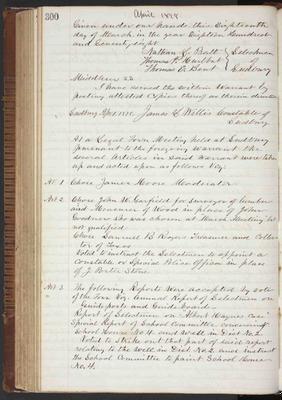 300
April 1878
Given under our hands this Eighteenth
day of March in the year Eighteen Hundred
and Seventy eight
Nathan L. Pratt } Selectmen
Thomas P. Hurlbut } of
Thomas O. Bent } Sudbury
Middlesex SS.
I have served the within Warrant by
posting attested Copies thereof as therein directed
Sudbury Apr 1. 1878. James L. Willis Constable of
Sudbury
At a Legal Town Meeting held at Sudbury
pursuant to the foregoing Warrant the
several Articles in said Warrant were taken
up and acted upon as follows viz:
Art 1 Chose James Moore Moderator
Art 2 Chose John W. Garfield for Surveyor of Lumber
and Measurer of Wood in place of John
Goodnow who was chosen at March Meeting but
not qualified
Chose Samuel B Rogers Treasurer and Collec
tor of Taxes
Voted to instruct the Selectmen to appoint a
Constable or Special Police Officer in place
of J. Porter Stone
Art 3 The following Reports were accepted by vote
of the Town viz: Annual Report of Selectmen on
Guideposts and Guideboards
Report of Selectmen on Albert Haynes Case
Special Report of School Committee concerning
School House No. 4. and Well in Dist No. 2
Voted to strike out that part of said report
relating to the well in Dist. No. 2 and instruct
the School Committee to paint School House
No. 4.